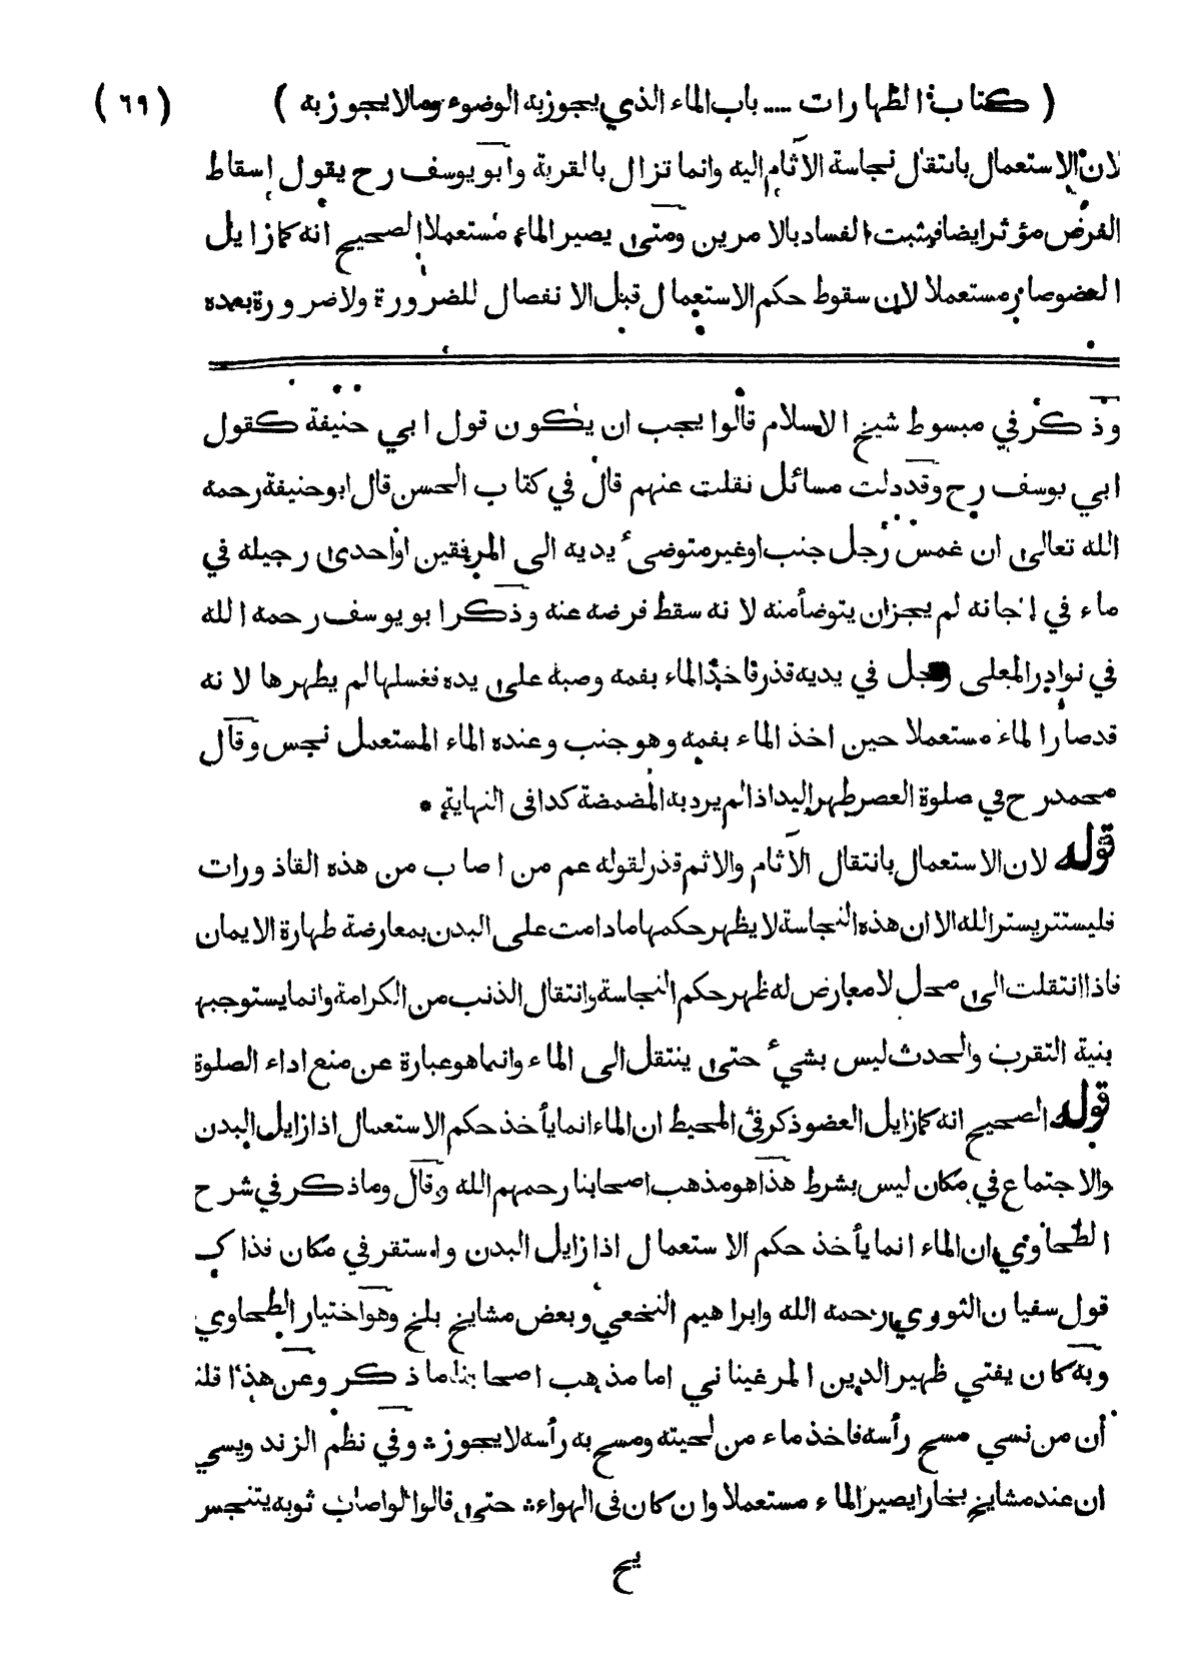 ( كتاب الطهارات .... باب الماء الذي يجوز به الوضوء وما لا يجوز به ) ( ٦٩ )
لان الاستعمال بانتقال نجاسة الآثام اليه وانما تزال بالقربة وابو يوسف رح يقول اسقاط
الفرض مؤثر ايضا فيثبت الفساد بالامرين ومتى يصير الماء مستعملا الصحيح انه كما زايل
العضو صار مستعملا لان سقوط حكم الاستعمال قبل الانفصال للضرورة ولا ضرورة بعده
وذكر في مبسوط شيخ الاسلام قالوا يجب ان يكون قول ابي حنيفة كقول
ابي يوسف رح وقد دلت مسائل نقلت عنهم قال في كتاب الحسن قال ابو حنيفة رحمه
الله تعالى ان غمس رجل جنب او غير متوضئ يديه الى المرفقين او احدى رجيله في
ماء في اجانه لم يجزان يتوضأ منه لانه سقط فرضه عنه وذكر ابو يوسف رحمه الله
في نوادر المعلى رجل في يديه قذر فاخذ الماء بفمه وصبه على يده فغسلها لم يطهرها لانه
قد صار الماء مستعملا حين اخذ الماء بفمه وهو جنب وعنده الماء المستعمل نجس وقال
محمد رح في صلوة العصر طهر اليد اذا لم يرد به المضمضة كذا في النهاية *
قوله لان الاستعمال بانتقال الآثام والاثم قذر لقوله عم من اصاب من هذه القاذورات
فليستتر بستر الله الا ان هذه النجاسة لا يظهر حكمها ما دامت على البدن بمعارضة طهارة الايمان
فاذا انتقلت الى محل لا معارض له ظهر حكم النجاسة وانتقال الذنب من الكرامة وانما يستوجبها
بنية التقرب والحدث ليس بشيء حتى ينتقل الى الماء وانما هو عبارة عن منع اداء الصلوة
قوله الصحيح انه كما زايل العضو ذكر في المحيط ان الماء انما يأخذ حكم الاستعمال اذا زايل البدن
والاجتماع في مكان ليس بشرط هذا هو مذهب اصحابنا رحمهم الله وقال وما ذكر في شرح
الطحاوي ان الماء انما يأخذ حكم الاستعمال اذا زايل البدن واستقر في مكان فذاك
قول سفيان الثوري رحمه الله وابراهيم النخعي وبعض مشايخ بلخ وهو اختيار الطحاوي
وبه كان يفتي ظهير الدين المرغيناني اما مذهب اصحابنا ما ذكر وعن هذا قلنا
أن من نسي مسح رأسه فاخذ ماء من لحيته ومسح به رأسه لا يجوز * وفي نظم الزندويسي
ان عند مشايخ بخارا يصير الماء مستعملا وان كان في الهواء * حتى قالوا لو اصاب ثوبه يتنجس
يح